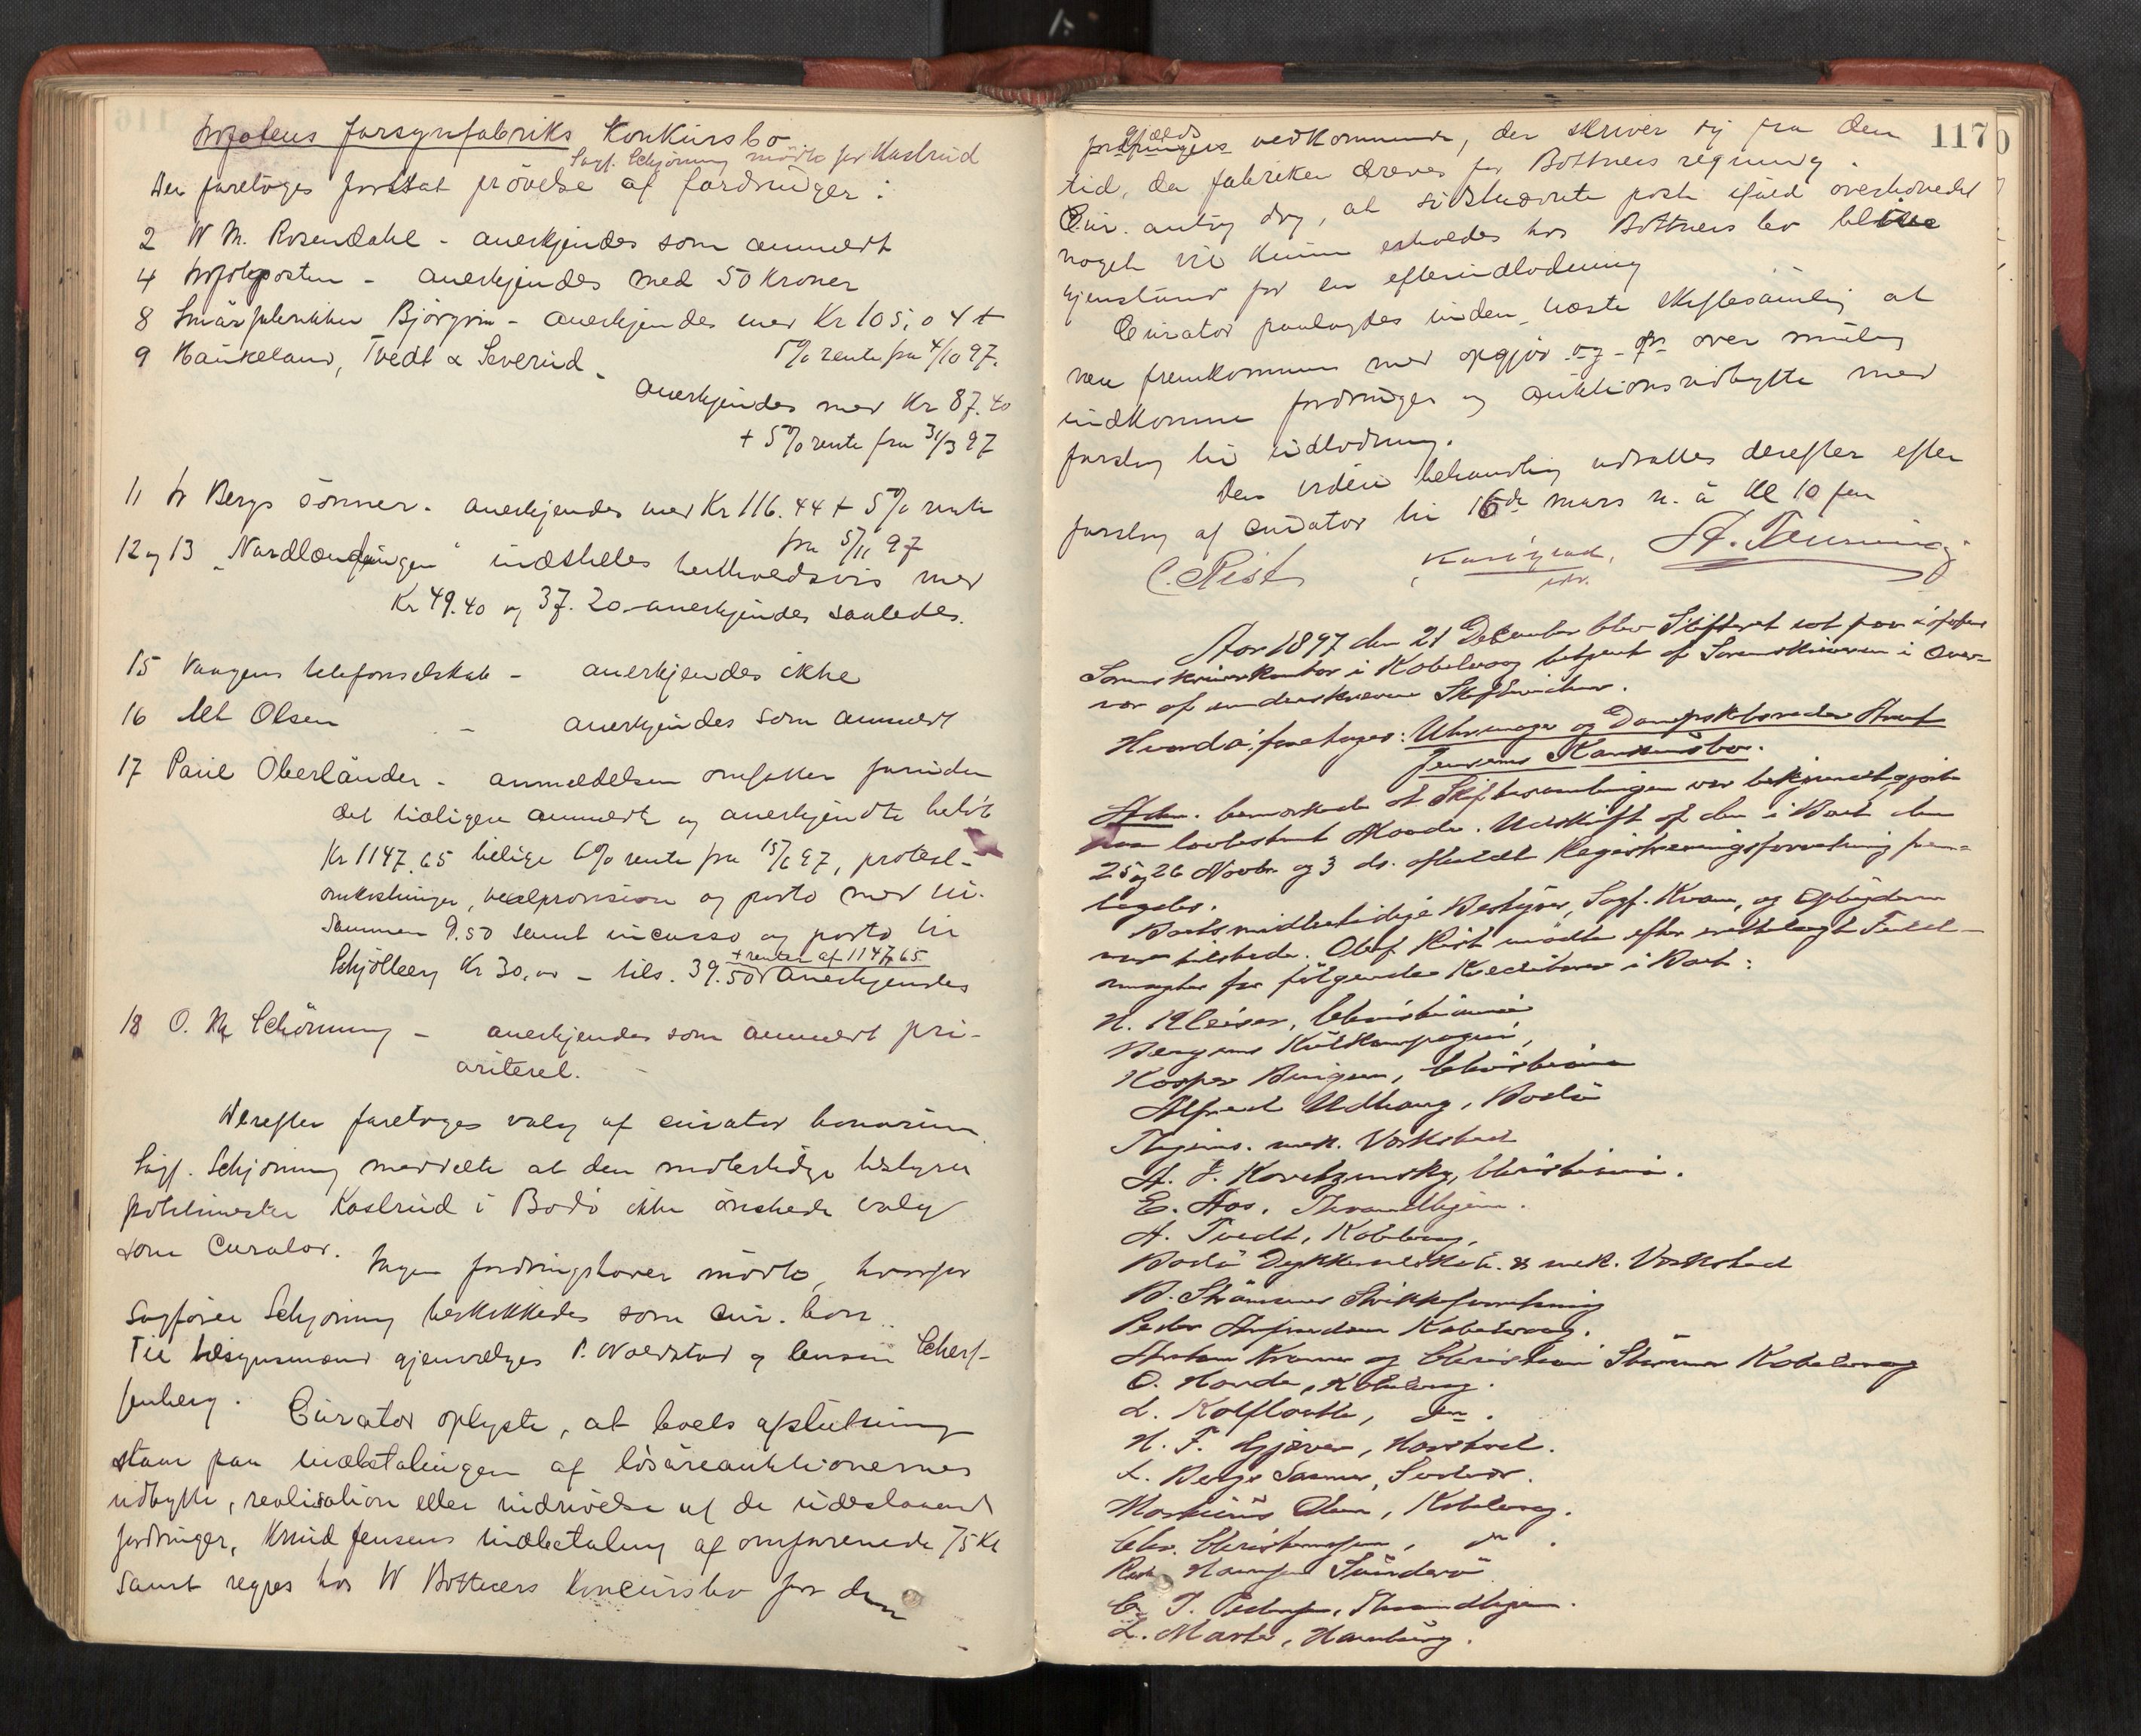 Lofotens Garnsynfabriks Konkursbo
Sagf. Schjoning mödte for Kastrud
Der foretoges fortsat prövelse af fordringer:
2 W M. Rosendahl - anerkjendes som anmeldt
4 Lofotposten - anerkjendes med 50 Kroner
8 Smörfabrikken Björgvin - anerkjendes med Kr 105,04 +
5% rente fra 4/10 97.
9 Haukeland, Tvedt & Severud -
anerkjendes med Kr 87.40
+ 5% rente fra 31/3 97
11 L Bergs sönner - anerkjendes med Kr 116.44 + 5% rente
fra 5/11 97
12 og 13 "Nordlændingen" indstilles med
Kr 49.40 og 37.20 - anerkjendes saaledes.
15 Vaagens telefonselskab - anerkjendes ikke
16 Mt Olsen - anerkjendes som anmeldt
17 Paul Oberländer - anmeldelsen omfatter foruden
det tidligere anmeldte og anerkjendte belöb
Kr 1147.65 tillige 6% rente fra 15/6 97, protest-
omkostninger, vexelprovision og porto med til-
sammen 9.50 samt incasso og porto til
Schjölberg Kr 30,00 - tils. 39.50 anerkjendes
+ renter af 1147.65
18 O. M Schönning - anerkjendes som anmeldt pri-
oriteret.
Derefter foretoges valg af curator bonorum.
Sagf. Schjoning meddelte at den midlertidige bestyrer
politimester Kastrud i Bodö ikke önskede valg
som Curator. Ingen fordringshaver mödte, hvorfor
Sagförer Schjoning beskikkedes som cur. bon.
Til tilsynsmænd gjenvælges P. Woldstad og Schef-
fenberg. Curator oplyste, at boets afslutning
staar paa indbetalingen af lösöreauktionernes
udbytte, realisation eller inddrivelse af de udestaaende
fordringer, Knud Jensens indbetaling af omforenede 75 Kr
samt regres hos W Bottners Koncursbo for den
117
gjælds vedkommende, der skriver sig fra den
tid, da fabriken dreves for Bottners regning.
Cur. antog dog, at sidstnævnte post ifald overhovedet
noget vil kunne erholdes hos Bottners bo blive
gjenstand for en efterudlodning
Curator paalagdes inden næste skiftesamling at
være fremkommen med opgjör og over mulig
indkomne fordringer og auktionsudbytte med
forslag til udlodning.
Den videre behandling udsattes derefter efter
forslag af curator til 16de mars n. å Kl 10 fm
C. Rist
Aar 1897 den 21 December blev Skifteret sat paa Lofotens
Sorenskriverkontor i Kabelvaag betjent af Sorenskriveren i Over-
vær af underskrevne Skiftevidner.
Hvorda foretages: Uhrmager og Dampskibsreder
Jensens Konkursbo.
Adm. bemærkede at Skiftesamlingen var bekjendtgjort
paa lovbestemt Maade. Udskrift af den i Boet den
25 og 26 Novbr og 3 ds. afholdt Registreringsforretning frem-
lagdes.
Boets midlertidige Bestyrer, Sagf. Kvam, og Opbyderen
var tilstede. Olaf Rist mödte efter fremlagt Fuld-
magter for fölgende Kreditorer i Boet:
N. Kleiser, Christiania
Bergens Kulkompagni,
Kasper Bingen, Christiania
Alfred Udhaug, Bodö
Thjems. mek. Værksted
A. J. Koritzinsky, Christiania.
E. Aas, Throndhjem.
A. Tvedt, Kabelvaag,
Bodö Dykkerselskab & mek. Værksted
B. Strömmes
Peder Kabelvaag.
Kramer og Christian Störmer Kabelvaag
O. Havde, Kabelvaag.
L. Kolflaath, do.
H. F. Gjæver, Harstad.
L. Bergs Sönner, Svolvær.
Martinus Olsen, Kabelvaag.
Chr. Christensen, do.
Hansen Sunderö
C. T. Pedersen, Throndhjem.
L. Hamburg.